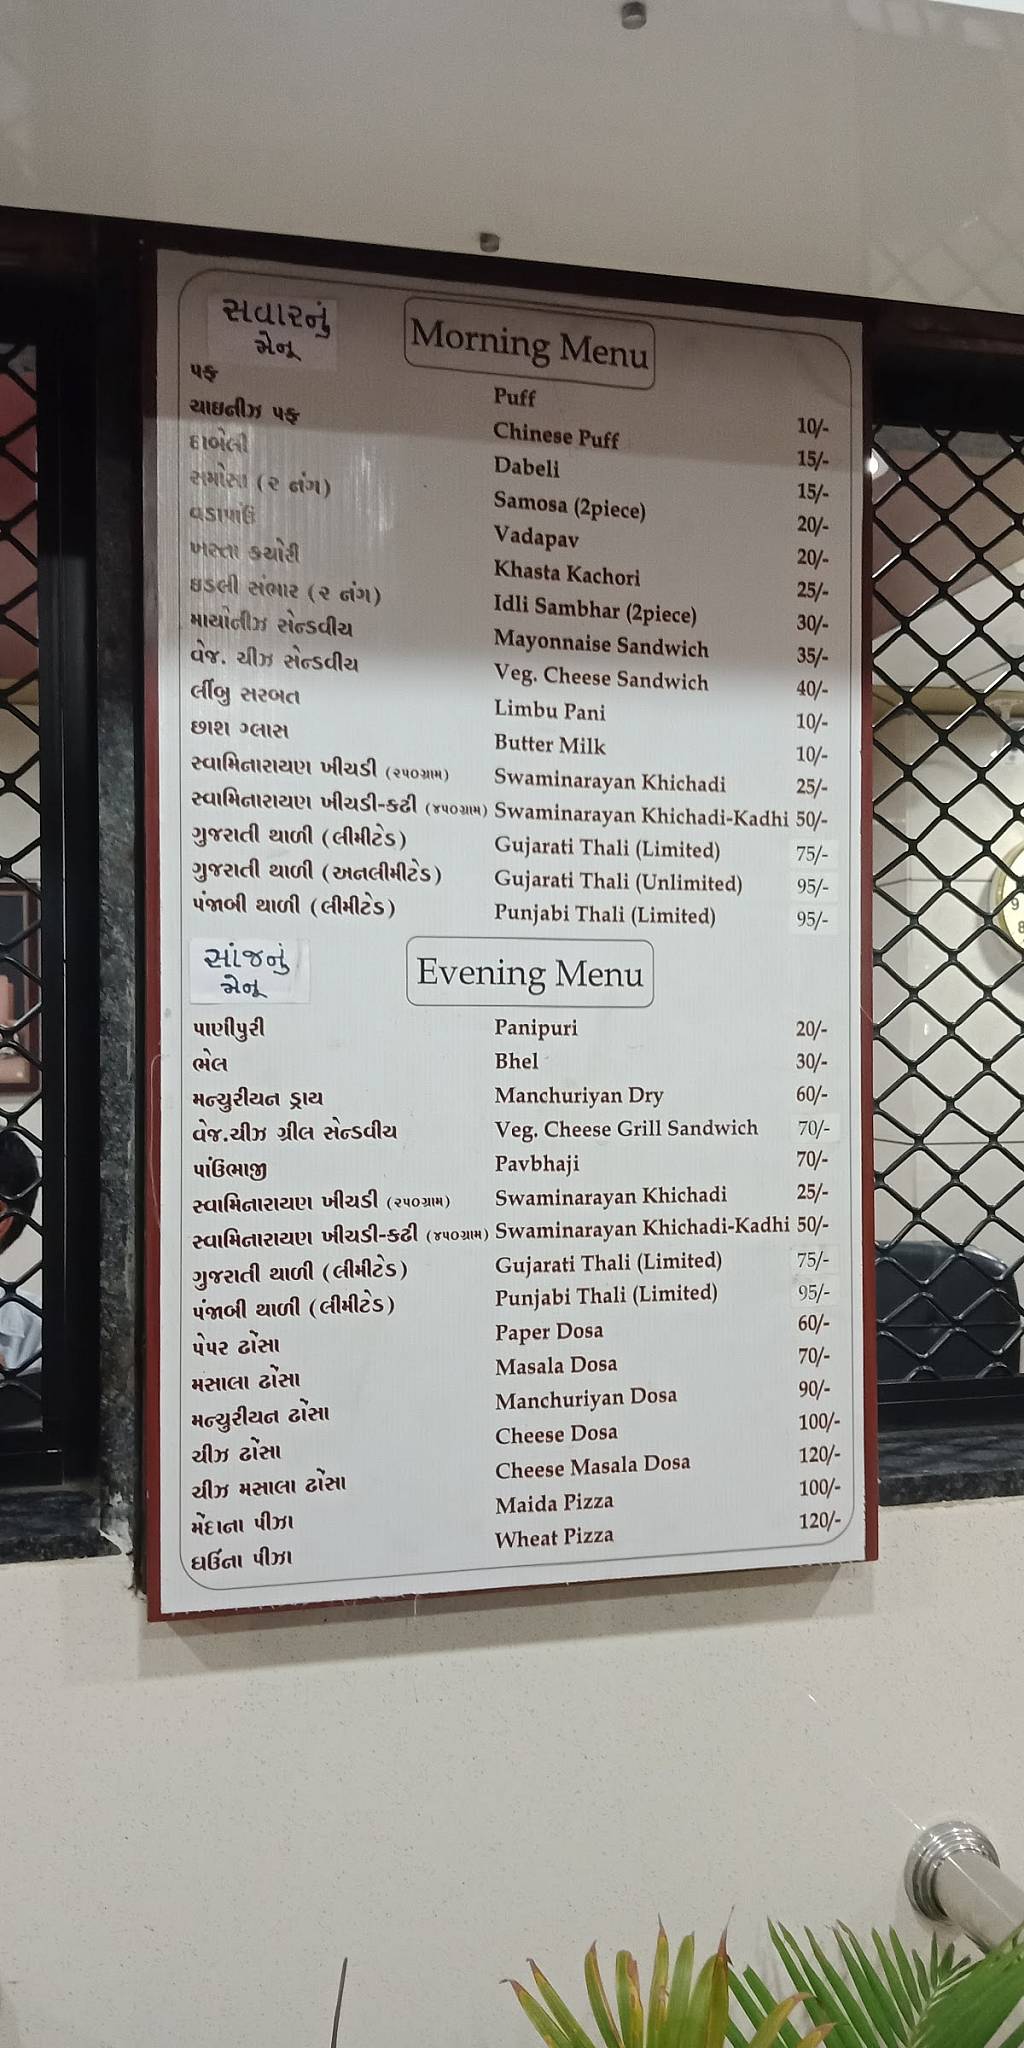 સવારનું Morning Menu
મેનૂ
પફ Puff 10/-
ચાઇનીઝ પફ Chinese Puff 15/-
દાબેલી Dabeli 15/-
સમોસા (૨ નંગ) Samosa (2piece) 20/-
વડાપાઉં Vadapav 20/-
ખસ્તા કચોરી Khasta Kachori 25/-
ઇડલી સંભાર (૨ નંગ) Idli Sambhar (2piece) 30/-
માયોનીઝ સેન્ડવીચ Mayonnaise Sandwich 35/-
વેજ. ચીઝ સેન્ડવીચ Veg. Cheese Sandwich 40/-
લીંબુ સરબત Limbu Pani 10/-
છાશ ગ્લાસ Butter Milk 10/-
સ્વામિનારાયણ ખીચડી (૨૫૦ગ્રામ) Swaminarayan Khichadi 25/-
સ્વામિનારાયણ ખીચડી-કઢી (૪૫૦ગ્રામ) Swaminarayan Khichadi-Kadhi 50/-
ગુજરાતી થાળી (લીમીટેડ) Gujarati Thali (Limited) 75/-
ગુજરાતી થાળી (અનલીમીટેડ) Gujarati Thali (Unlimited) 95/-
પંજાબી થાળી (લીમીટેડ) Punjabi Thali (Limited) 95/-
સાંજનું Evening Menu
મેનૂ
પાણીપુરી Panipuri 20/-
ભેલ Bhel 30/-
મન્ચુરીયન ડ્રાય Manchuriyan Dry 60/-
વેજ.ચીઝ ગ્રીલ સેન્ડવીચ Veg. Cheese Grill Sandwich 70/-
પાંઉભાજી Pavbhaji 70/-
સ્વામિનારાયણ ખીચડી (૨૫૦ગ્રામ) Swaminarayan Khichadi 25/-
સ્વામિનારાયણ ખીચડી-કઢી (૪૫૦ગ્રામ) Swaminarayan Khichadi-Kadhi 50/-
ગુજરાતી થાળી (લીમીટેડ) Gujarati Thali (Limited) 75/-
પંજાબી થાળી (લીમીટેડ) Punjabi Thali (Limited) 95/-
પેપર ઢોંસા Paper Dosa 60/-
મસાલા ઢોંસા Masala Dosa 70/-
મન્ચુરીયન ઢોંસા Manchuriyan Dosa 90/-
ચીઝ ઢોંસા Cheese Dosa 100/-
ચીઝ મસાલા ઢોંસા Cheese Masala Dosa 120/-
મેંદાના પીઝા Maida Pizza 100/-
ઘઉંના પીઝા Wheat Pizza 120/-
9
8